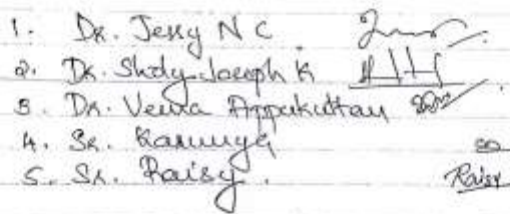 1. Dr. Jessy N C
2. Dr. Shdy Joseph K
3. Dr. Veena Appukuttan
4. Sr. Karunya
5. Sr. Raisy. Raisy